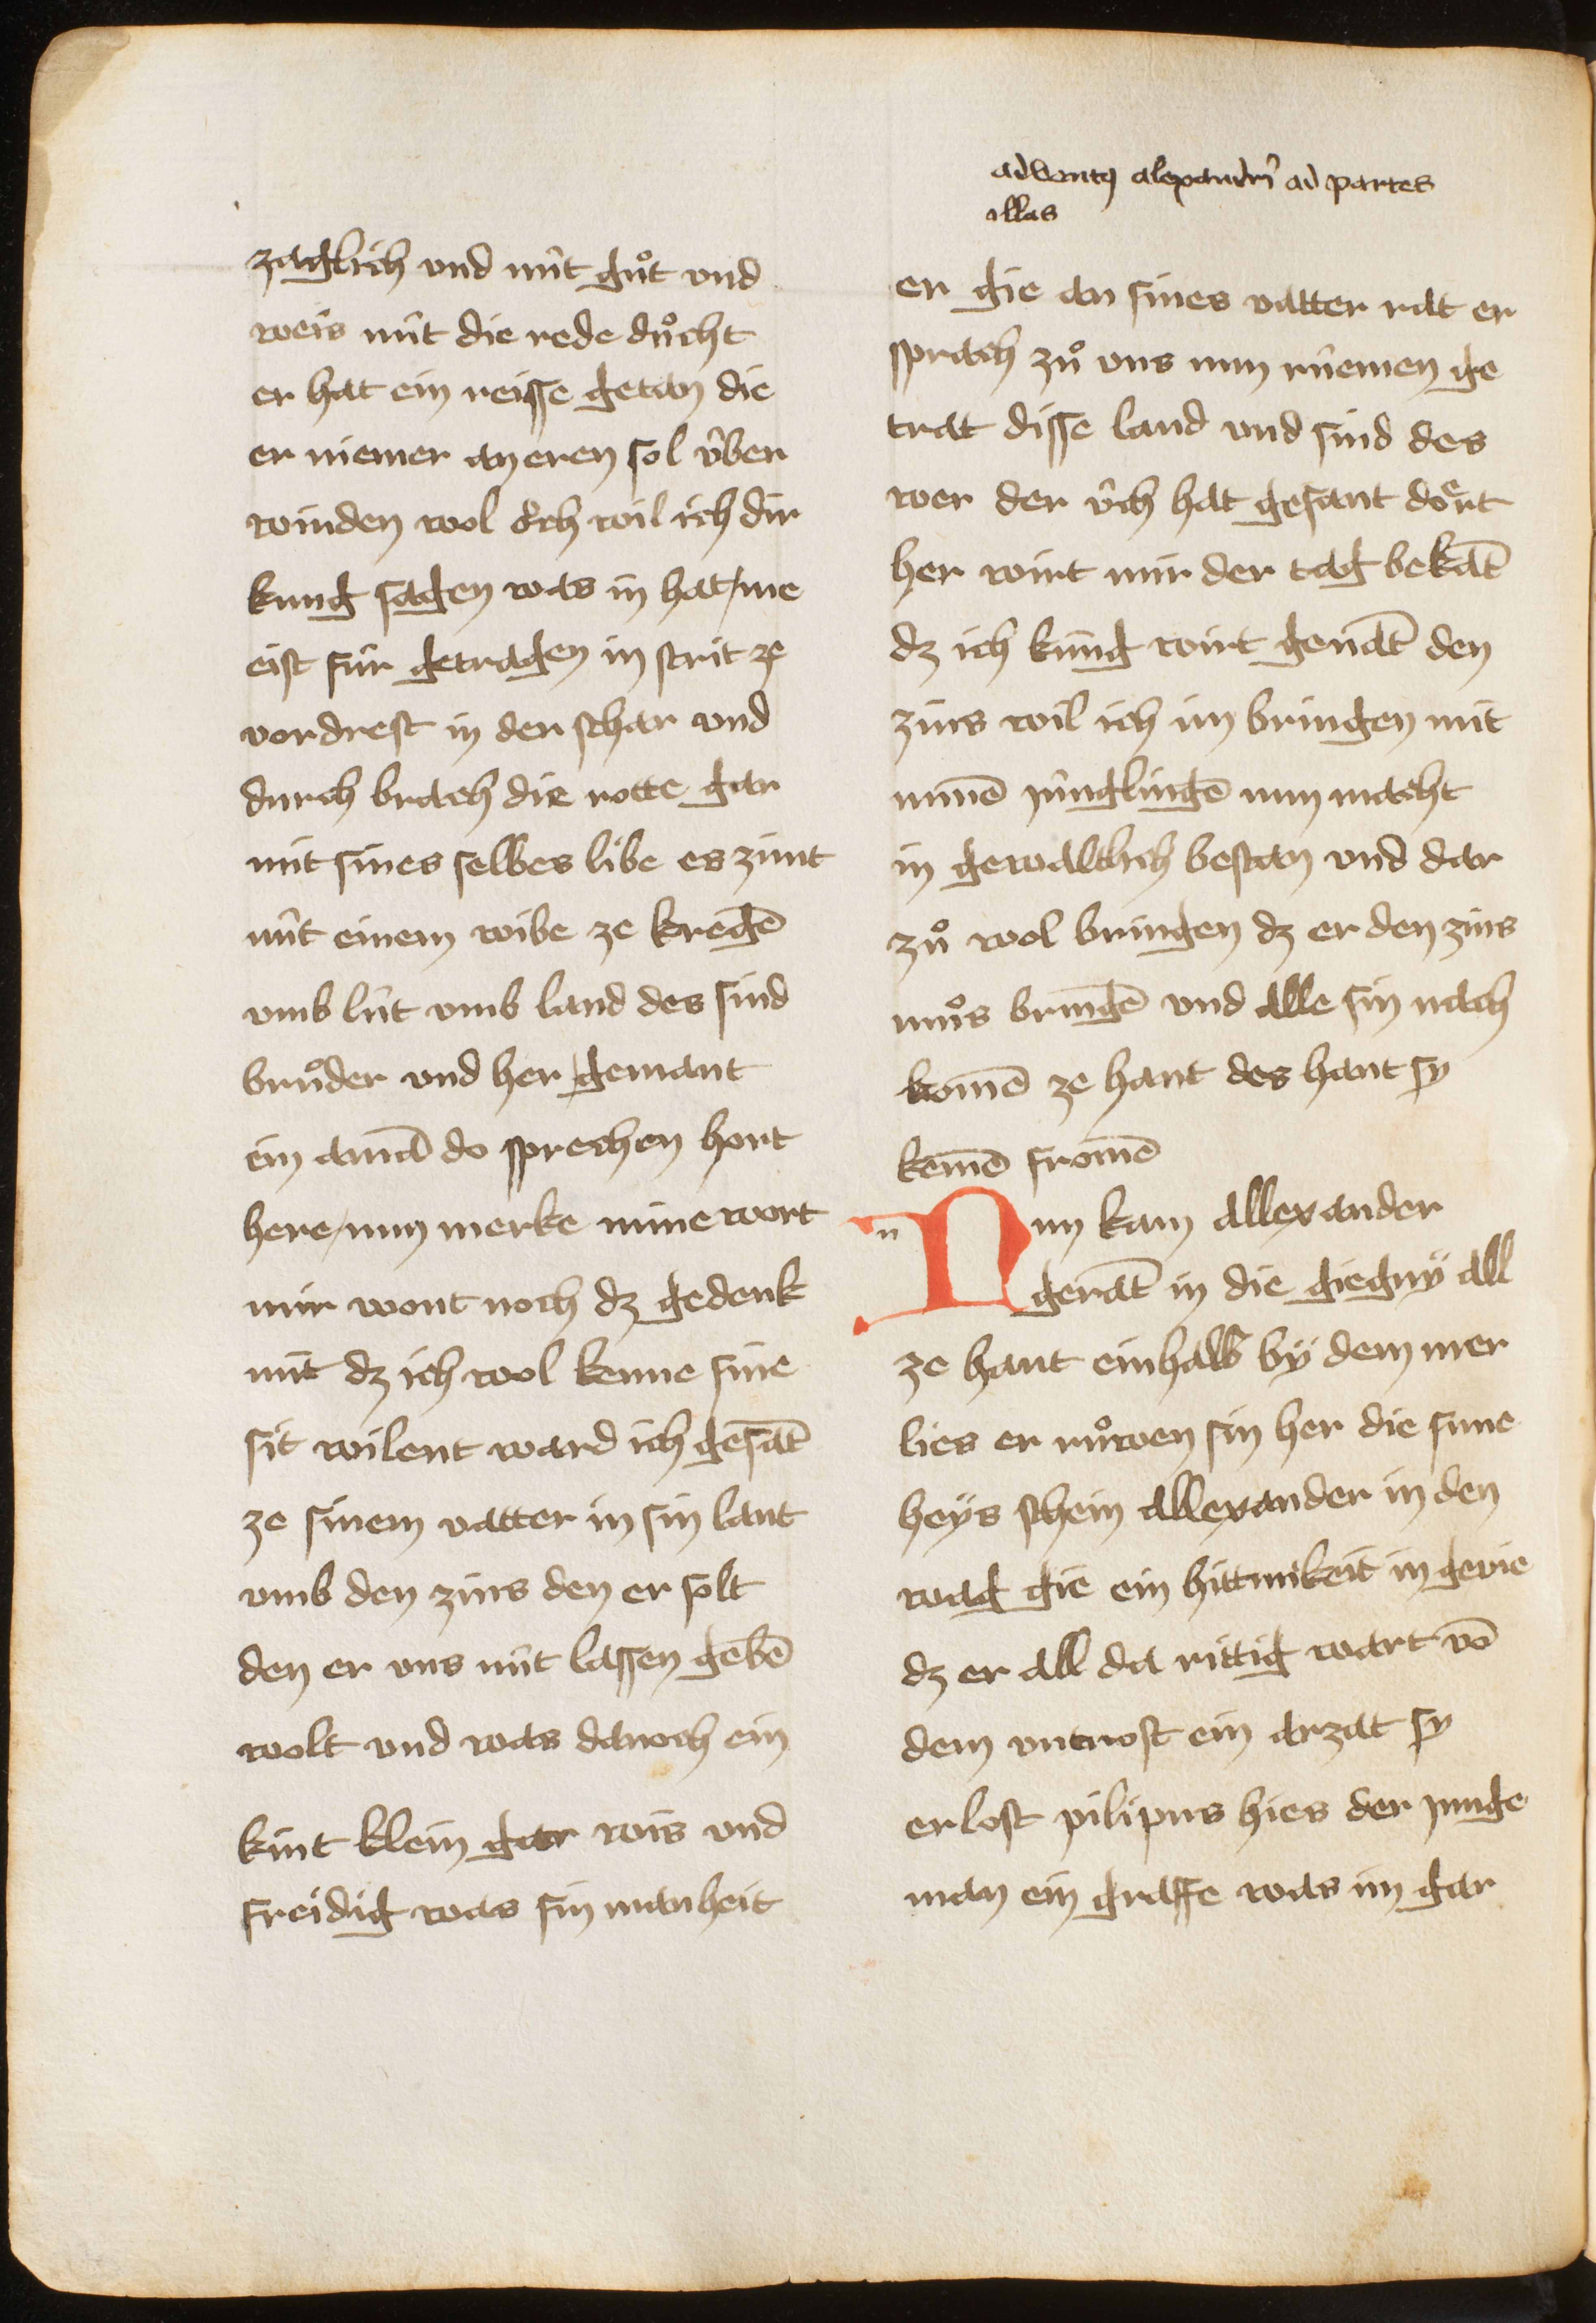 zaglich vnd nüt guͦt vnd
weis nüt die rede duͦcht
er hat ein reisse getan die
er niemer an eren sol v̂ber
winden wol oͮch wil ich dir
kung sagen was in hat / me
eist für getragen in strit ze
vordrest in der schar vnd
durch brach die rotte gar
mit sines selbes libe es zimt
nüt einem wibe ze kregē
vmb lüt vmb land des sind
bruͦder vnd her gemant
ein and̄ do sprechen hort
here / nun merke mine wort
mir wont noch dz gedenk
mit dz ich wol kenne sine
sit wilent ward ich gesāt
ze sinem vatter in sin lant
vmb den zins den er solt
den er vns nüt lassen gebē
wolt vnd was danoch ein
kint klein gar wis vnd
freidig was sin manheit
adventus alexandri ad partes
illas
er gie an sines vatter rat er
sprach zuͦ vns nun rüemen ge
trat disse land vnd sind des
wer der v̂ch hat gesant doͤrt
her wirt mir der tag bekāt
dz ich küng wirt genāt den
zins wil ich im bringen mit
minē jünglingē nun macht
in gewaltlich bestan vnd dar
zuͦ wol bringen dz er den zins
muͦs bringē vnd alle sin nach
komē ze hant des hant sy
kemē fromē
Nun kam allexander
gerāt in die giegny all
ze hant einhalb by dem mer
lies er ruͦwen sin her die sune
heys schein allexander in den
wag gie ein hittmikeit in gevie
dz er all da rittig wart vō
dem vntrost ein arzat sy
erlost pilipus hies der junge
man ein graffe was im gar